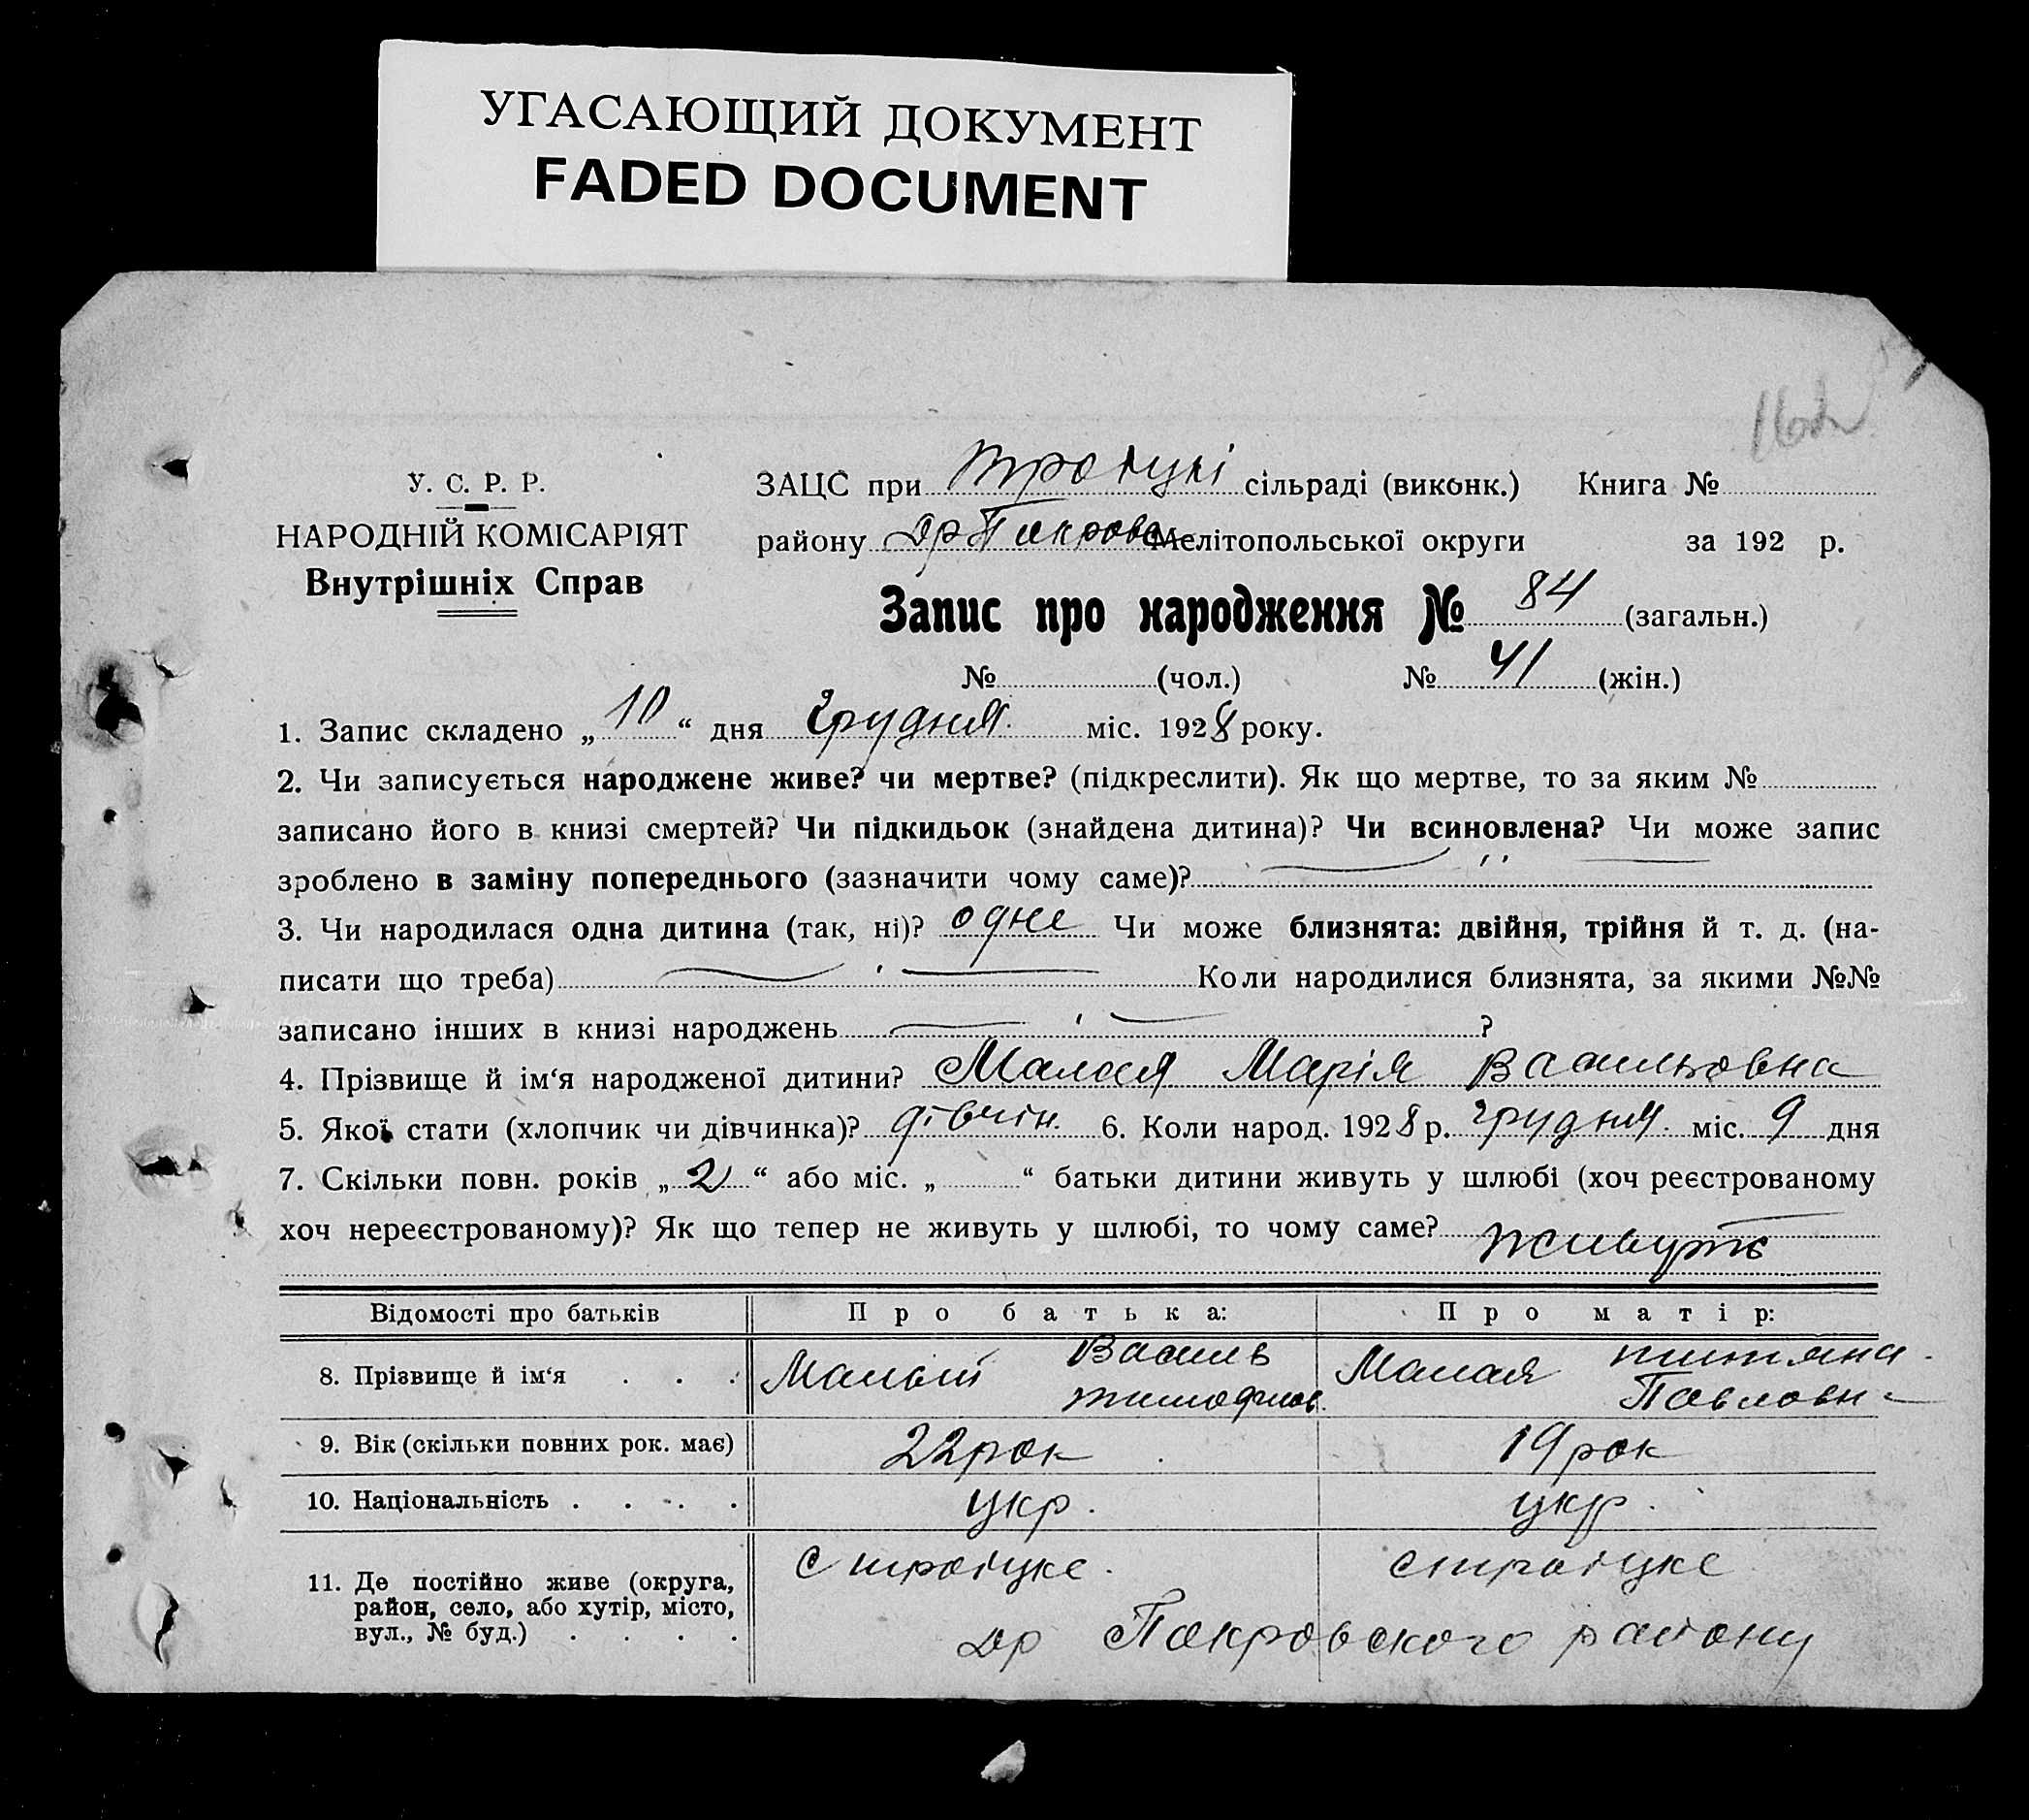 УГАСАЮЩИЙ ДОКУМЕНТ
FADED DOCUMENT
У. С. Р. Р.
НАРОДНІЙ КОМІСАРІЯТ
Внутрішніх Справ
ЗАЦС при Троіцкі сільраді (виконк.) Книга №
району Др Покровс Мелітопольської округи за 192 р.
Запис про народження № 84 (загальн.)
№ (чол.) № 41 (жін.)
1. Запис складено „ 10 “ дня грудня міс. 1928 року.
2. Чи записується народжене живе? чи мертве? (підкреслити). Як що мертве, то за яким №
записано його в книзі смертей? Чи підкидьок (знайдена дитина)? Чи всиновлена? Чи може запис
зроблено в заміну попереднього (зазначити чому саме)?
3. Чи народилася одна дитина (так, ні)? одне Чи може близнята: двійня, трійня й т. д. (на-
писати що треба) Коли народилися близнята, за якими №№
записано інших в книзі народжень ?
4. Прізвище й ім‘я народженої дитини? Малая Марія Васильовна
5. Якої стати (хлопчик чи дівчинка)? дівчін. 6. Коли народ. 1928 р. грудня міс. 9 дня
7. Скільки повн. років „ 2 “ або міс. „ “ батьки дитини живуть у шлюбі (хоч реєстрованому
хоч нереєстрованому)? Як що тепер не живуть у шлюбі, то чому саме? живуть
Відомості про батьків Про батька: Про матір:
8. Прізвище й ім‘я . . . Малый Василь Тимофиов. Малая Титяна Павловн
9. Вік (скільки повних рок. має) 22 рок 19 рок
10. Національність . . . . укр. укр.
11. Де постійно живе (округа, с троіцке. с троіцке
район, село, або хутір, місто,
вул., № буд.) . . . . др Покровского району